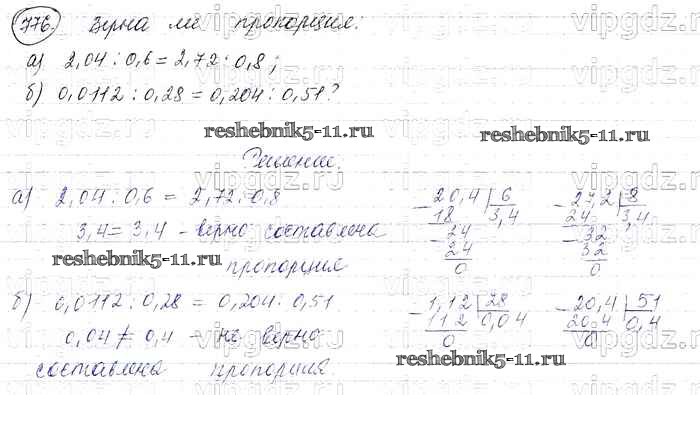 776. Верна ли пропорция:
а) 2,04 : 0,6 = 2,72 : 0,8;
б) 0,0112 : 0,28 = 0,204 : 0,51?
reshebnik5-11.ru reshebnik5-11.ru
Решение.
а) 2,04 : 0,6 = 2,72 : 0,8
3,4 = 3,4 - верно составлена
пропорция
reshebnik5-11.ru
20,4 | 6
18 | 3,4
24
24
0
27,2 | 8
24 | 3,4
32
32
0
б) 0,0112 : 0,28 = 0,204 : 0,51
0,04 ≠ 0,4 - не верно
составлена пропорция.
1,12 | 28
112 | 0,04
0
20,4 | 51
20,4 | 0,4
0
reshebnik5-11.ru
vipgdz.ru